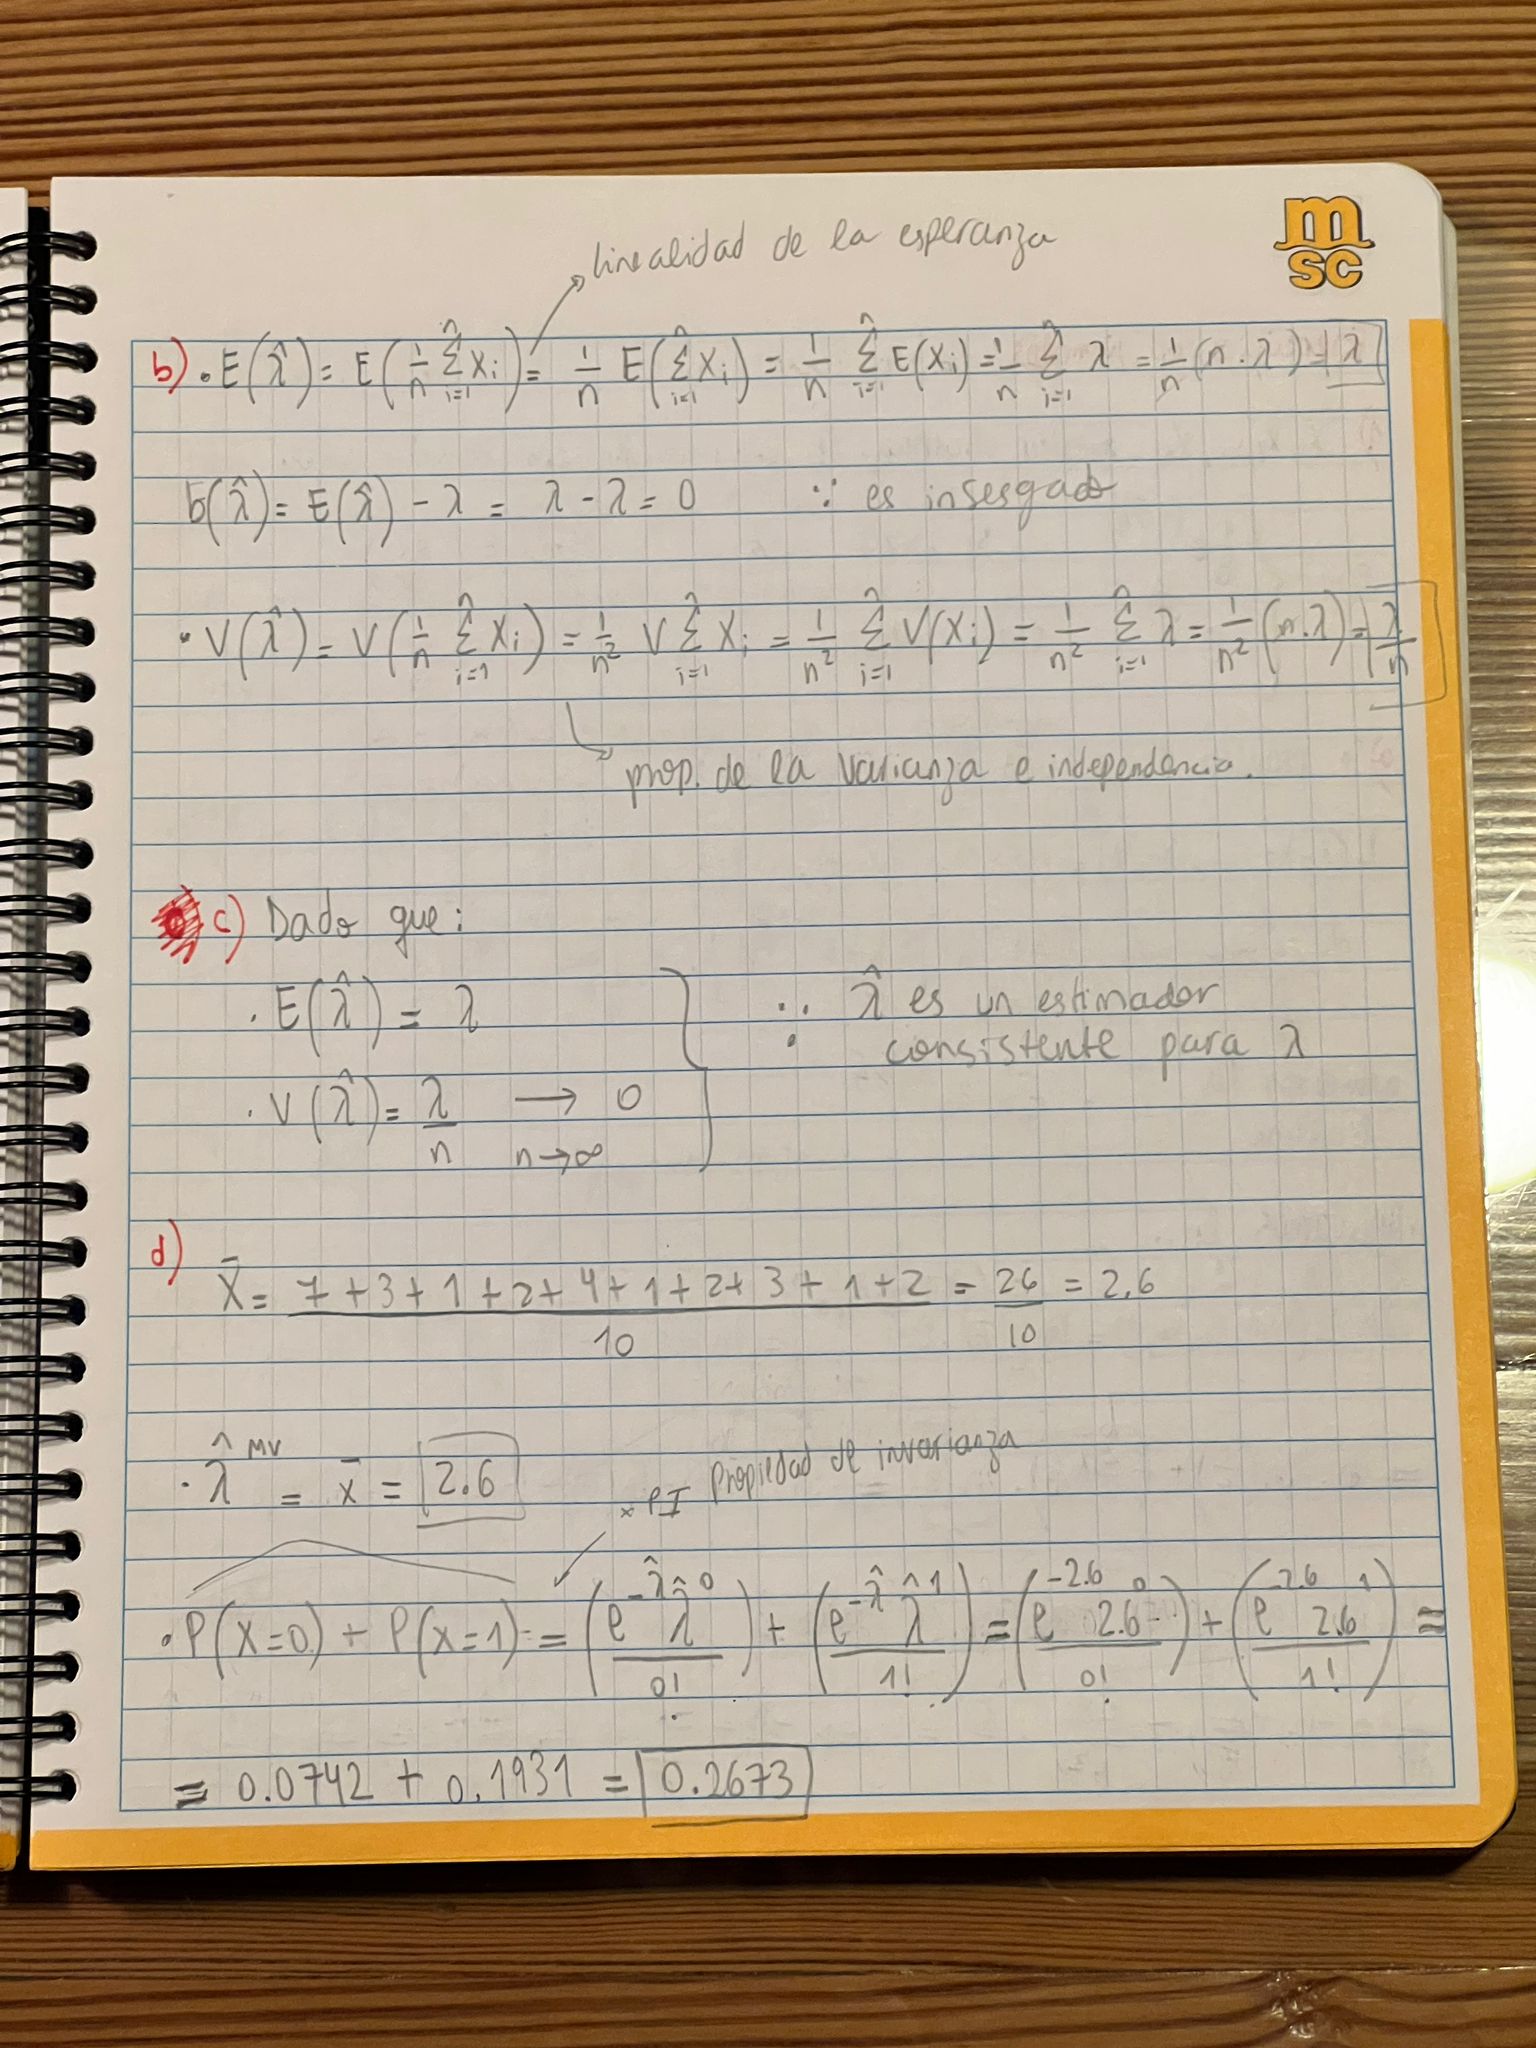 m
sc
linealidad de la esperanza
b) • E(λ̂) = E(1/n Σ^n_{i=1} Xi) = 1/n E(Σ^n_{i=1} Xi) = 1/n Σ^n_{i=1} E(Xi) = 1/n Σ^n_{i=1} λ = 1/n (n·λ) = λ
b(λ̂) = E(λ̂) - λ = λ - λ = 0 ∵ es insesgado
• V(λ̂) = V(1/n Σ^n_{i=1} Xi) = 1/n² V Σ^n_{i=1} Xi = 1/n² Σ^n_{i=1} V(Xi) = 1/n² Σ^n_{i=1} λ = 1/n² (n.λ) = λ/n
prop. de la varianza e independencia.
c) Dado que:
· E(λ̂) = λ
∴ λ̂ es un estimador
consistente para λ
· V(λ̂) = λ/n → 0
n→∞
d) X̄ = 7+3+1+2+4+1+2+3+1+2 / 10 = 26/10 = 2.6
· λ̂^MV = x̄ = 2.6
× PI Propiedad de invarianza
· P(X=0) + P(X=1) = (e^-λ̂ λ̂^0 / 0!) + (e^-λ̂ λ̂^1 / 1!) = (e^-2.6 2.6^0 / 0!) + (e^-2.6 2.6^1 / 1!) =
= 0.0742 + 0.1931 = 0.2673